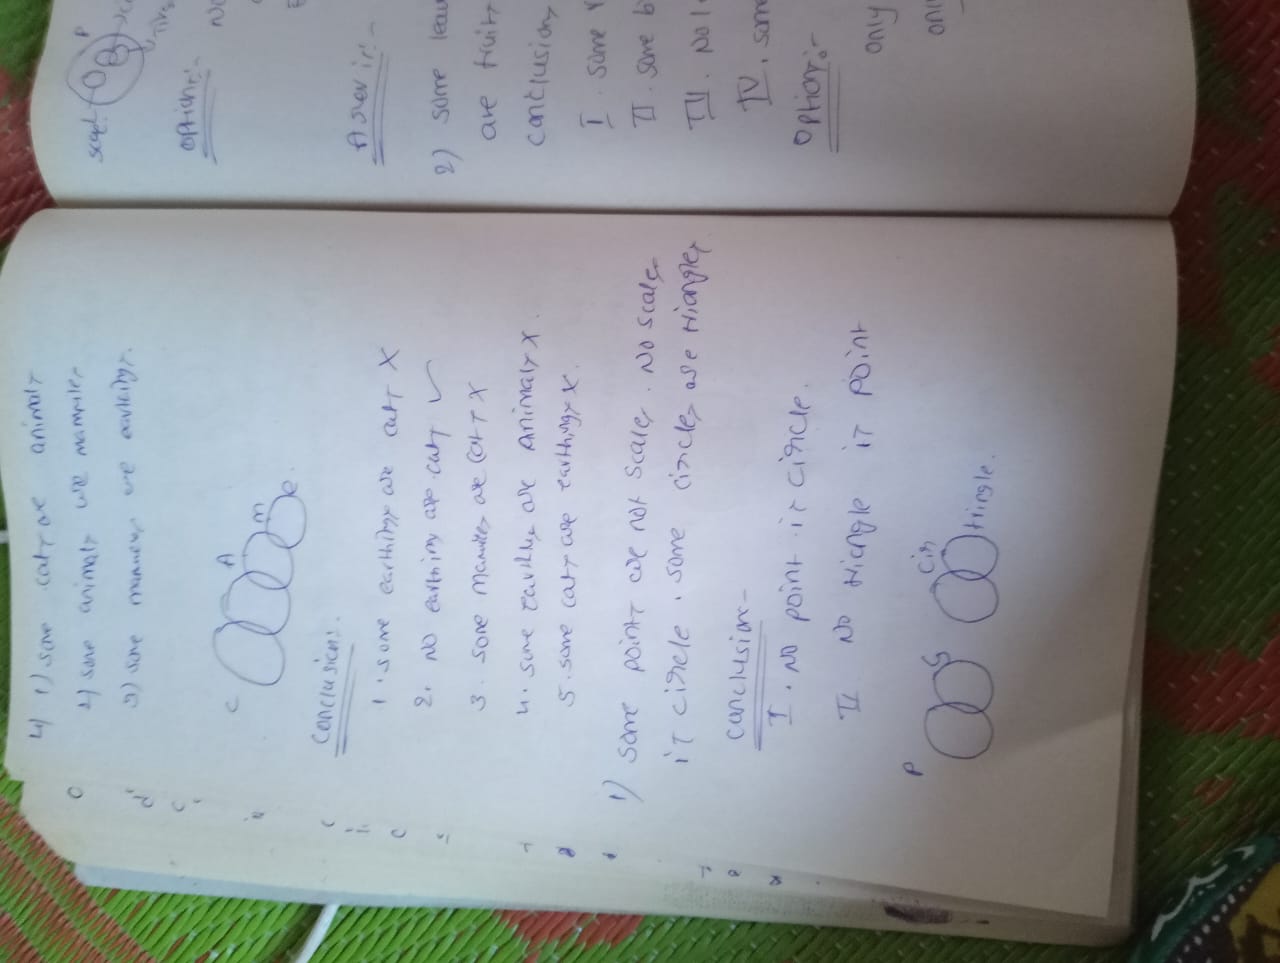 4) 1) some cats are animals
2) some animals are mamules
3) some are earthings.
C A M e.
Conclusion:.
1. some earthings are cats X
2. No earthing are cats ✓
3. some mamules are cats X
4. some earthings are Animals X.
5. some cats are earthings X.
1) some points are not scales. No scale
is circle. some circles are triangles
conclusion-
I. No point is circle.
II No triangle is point
P S Cir tringle.
P
option:-
No
Aswer is:-
2) some leav
are fruits
conclusion,
I. some
II. some b
III. No l
IV. som
option:-
only
only